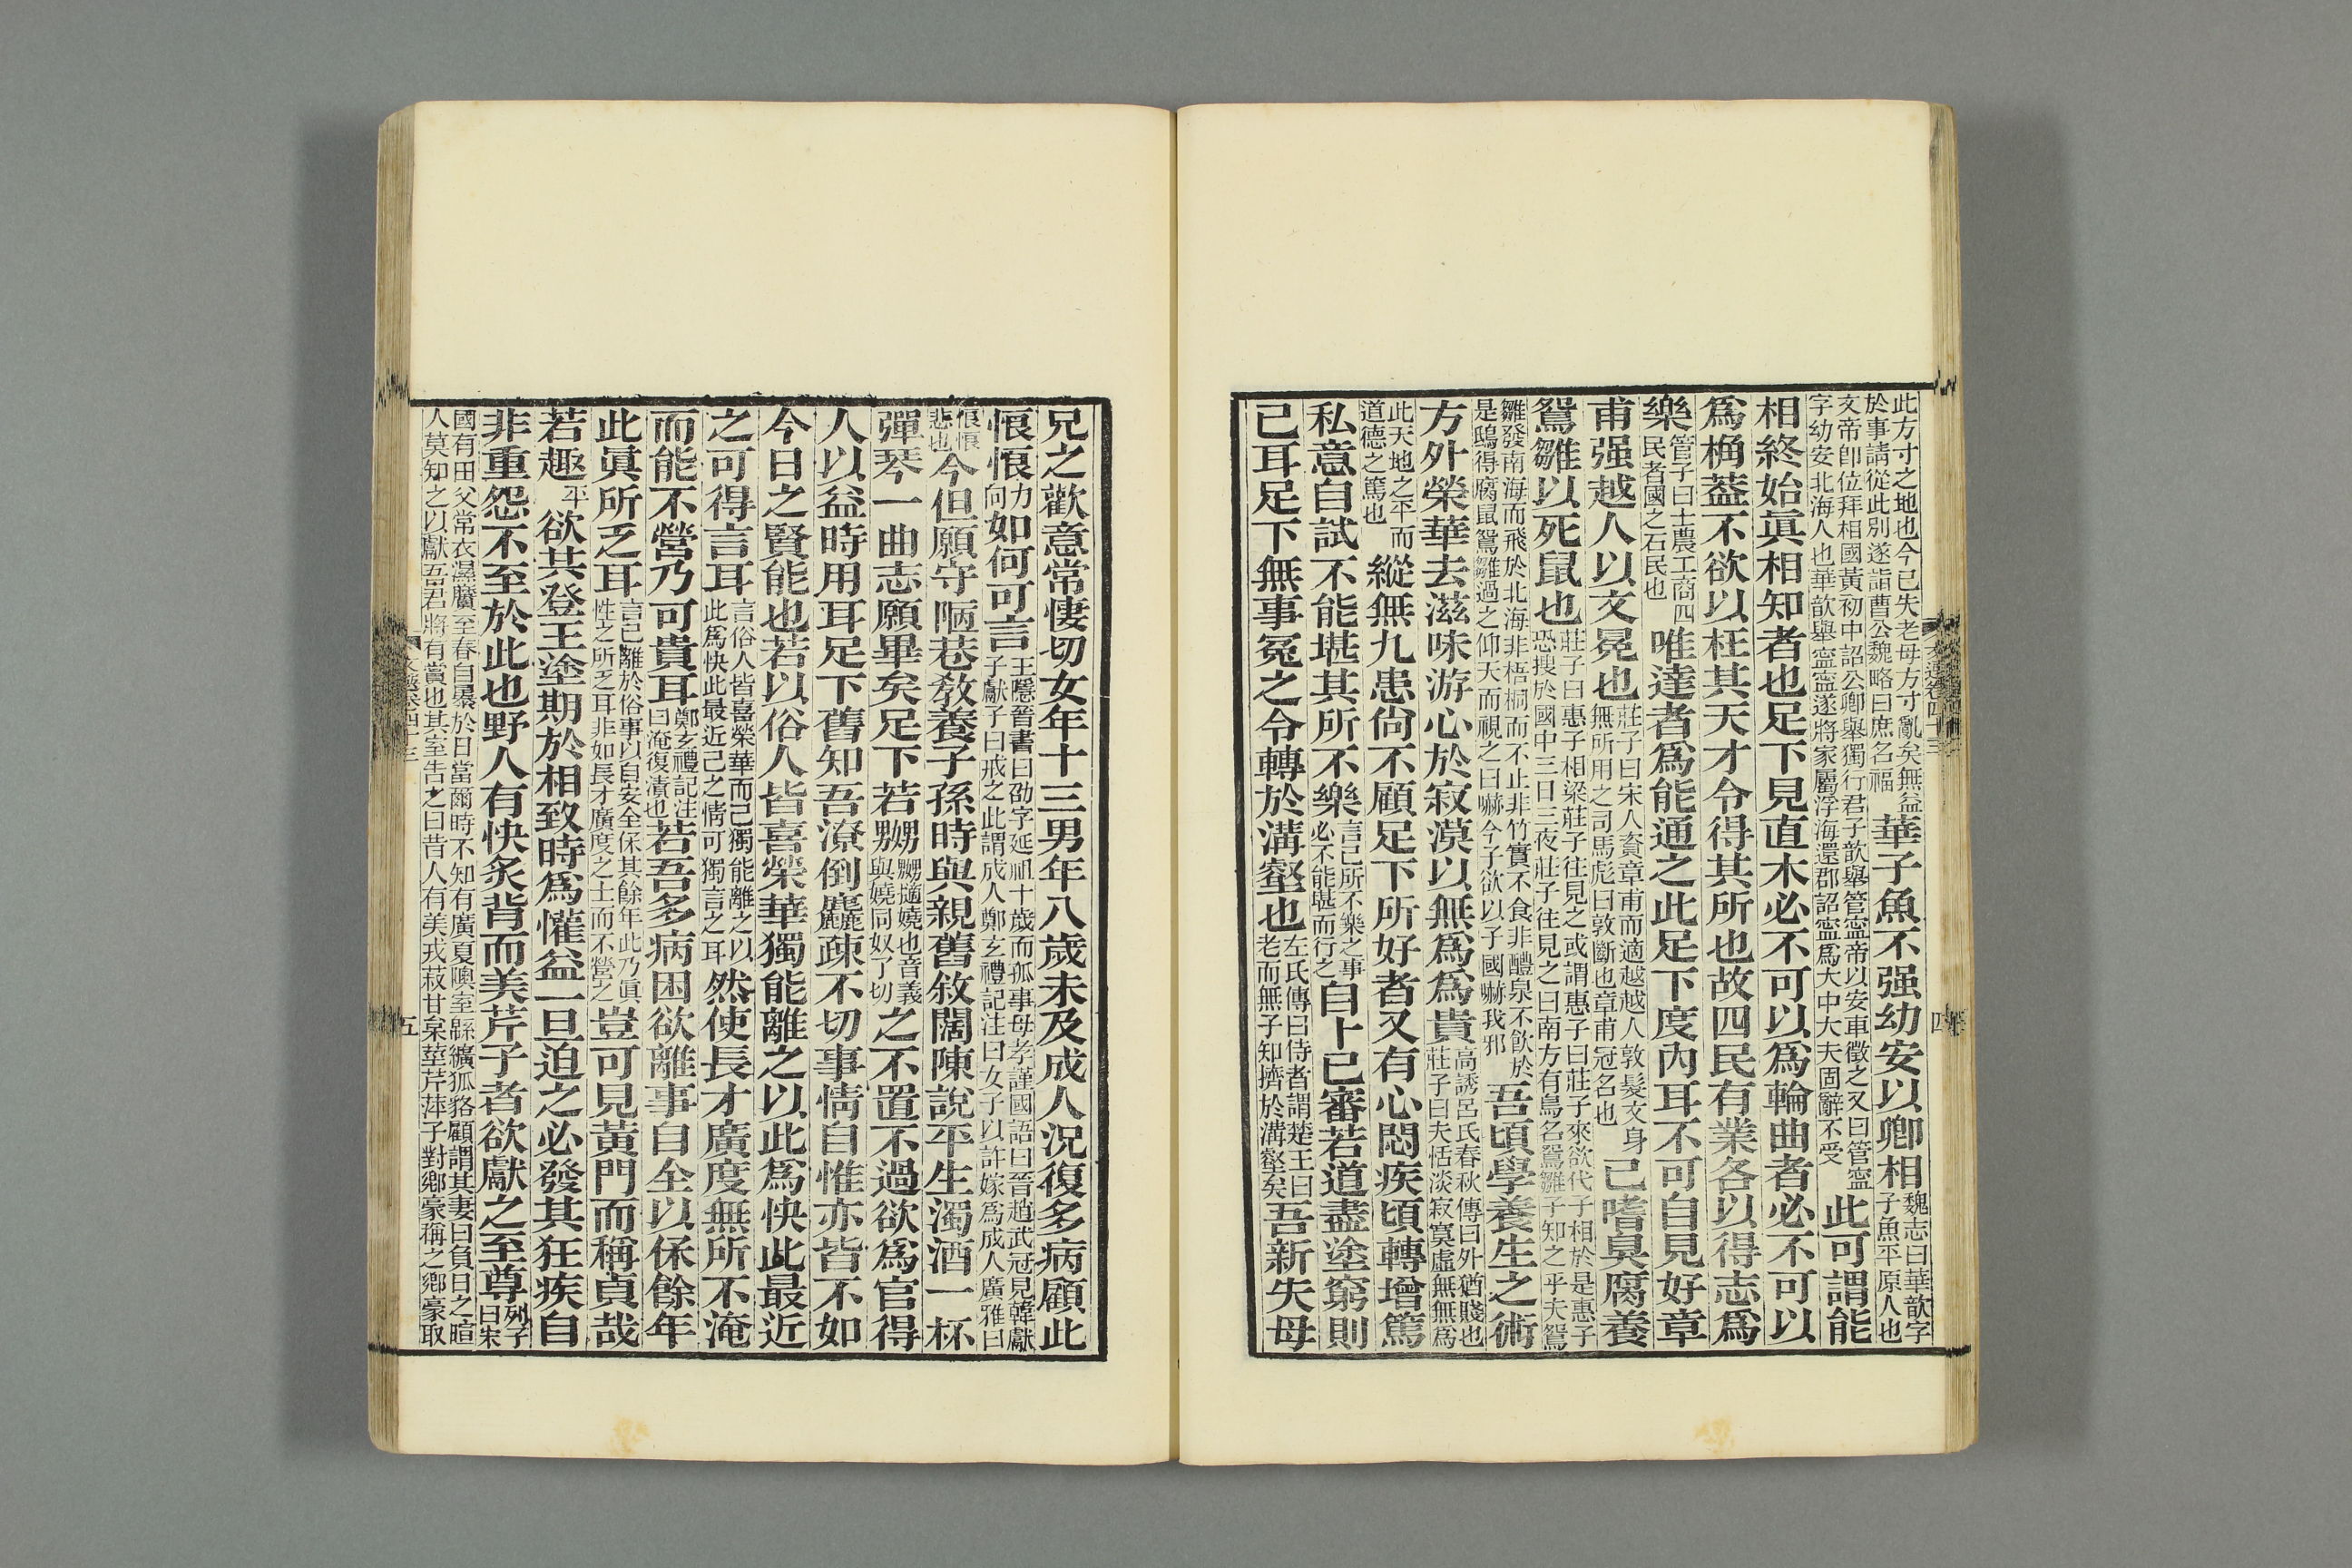 此方寸之地也今已失老母方寸亂矣無益
於事請從此別遂詣曹公魏略曰庶名福
華子魚不强幼安以卿相
魏志曰華歆字
子魚平原人也
文帝卽位拜相國黃初中詔公卿舉獨行君子歆舉管寍帝以安車徵之又曰管寍
字幼安北海人也華歆舉寍寍遂將家屬浮海還郡詔寍爲大中大夫固辭不受
此可謂能
相終始眞相知者也足下見直木必不可以爲輪曲者必不可以
爲桷葢不欲以枉其天才令得其所也故四民有業各以得志爲
樂
管子曰士農工商四
民者國之石民也
唯達者爲能通之此足下度內耳不可自見好章
甫强越人以文冕也
莊子曰宋人資章甫而適越越人敦髮文身
無所用之司馬彪曰敦斷也章甫冠名也
己嗜臭腐養
鴛雛以死鼠也
莊子曰惠子相梁莊子往見之或謂惠子曰莊子來欲代子相於是惠子
恐搜於國中三日三夜莊子往見之曰南方有鳥名鴛雛子知之乎夫鴛
雛發南海而飛於北海非梧桐而不止非竹實不食非醴泉不飲於
是鴟得腐鼠鴛雛過之仰天而視之曰嚇今子欲以子國嚇我邪
吾頃學養生之術
方外榮華去滋味游心於寂漠以無爲爲貴
高誘呂氏春秋傳曰外猶賤也
莊子曰夫恬淡寂寞虛無無爲
此天地之平而
道德之篤也
縱無九患尙不顧足下所好者又有心悶疾頃轉增篤
私意自試不能堪其所不樂
言己所不樂之事
必不能堪而行之
自卜已審若道盡塗窮則
已耳足下無事冤之令轉於溝壑也
左氏傳曰侍者謂楚王曰
老而無子知擠於溝壑矣
吾新失母
兄之歡意常悽切女年十三男年八歲未及成人況復多病顧此
悢悢
力
向
如何可言
王隱晉書曰劭字延祖十歲而孤事母孝謹國語曰晉趙武冠見韓獻
子獻子曰戒之此謂成人鄭玄禮記注曰女子以許嫁爲成人廣雅曰
悢悢
悲也
今但願守陋巷敎養子孫時與親舊敘闊陳說平生濁酒一杯
彈琴一曲志願畢矣足下若嬲
嬲擿嬈也音義
與嬈同奴了切
之不置不過欲爲官得
人以益時用耳足下舊知吾潦倒麤疎不切事情自惟亦皆不如
今日之賢能也若以俗人皆喜榮華獨能離之以此爲快此最近
之可得言耳
言俗人皆喜榮華而己獨能離之以
此爲快此最近己之情可獨言之耳
然使長才廣度無所不淹
而能不營乃可貴耳
鄭玄禮記注
曰淹復漬也
若吾多病困欲離事自全以保餘年
此眞所乏耳
言己離於俗事以自安全保其餘年此乃眞
性之所乏耳非如長才廣度之士而不營之
豈可見黃門而稱貞哉
若趣
平
欲其登王塗期於相致時爲懽益一旦迫之必發其狂疾自
非重怨不至於此也野人有快炙背而美芹子者欲獻之至尊
列子
曰宋
國有田父常衣濕黂至春自暴於日當爾時不知有廣夏隩室緜纊狐狢顧謂其妻曰負日之暄
人莫知之以獻吾君將有賞也其室告之曰昔人有美戎菽甘枲莖芹萍子對鄉豪稱之鄉豪取
五